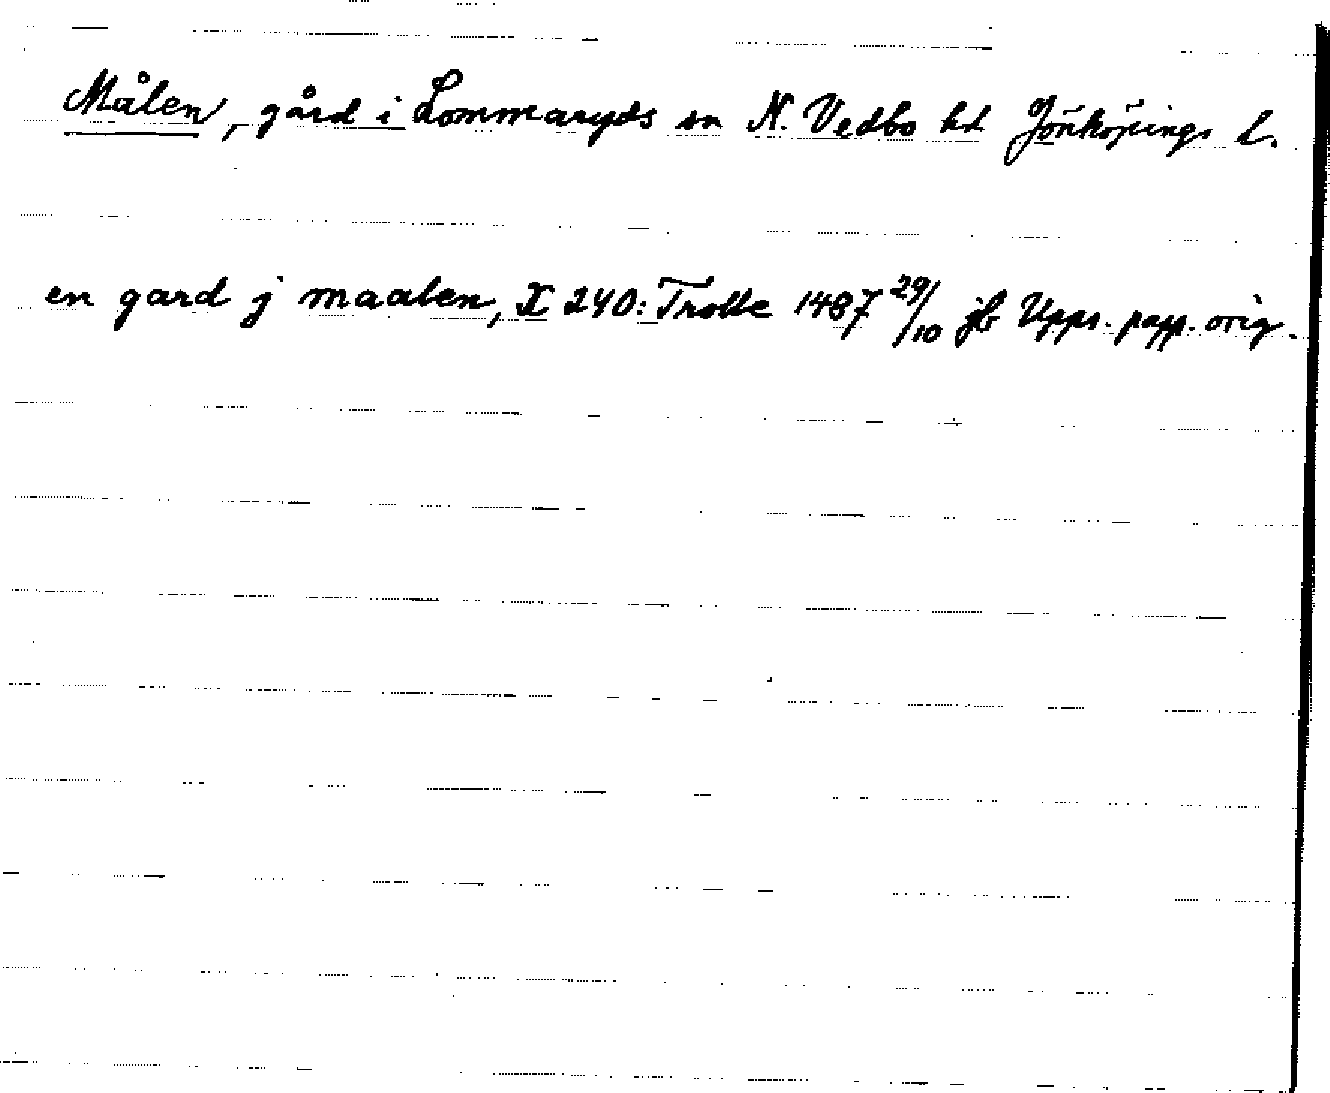 Målen, gård i Lommaryds sn N. Vedbo hd Jönköpings l.
en gard j maalen, X 240: Trolle 1487 29/10 jb Upps. papp. orig.